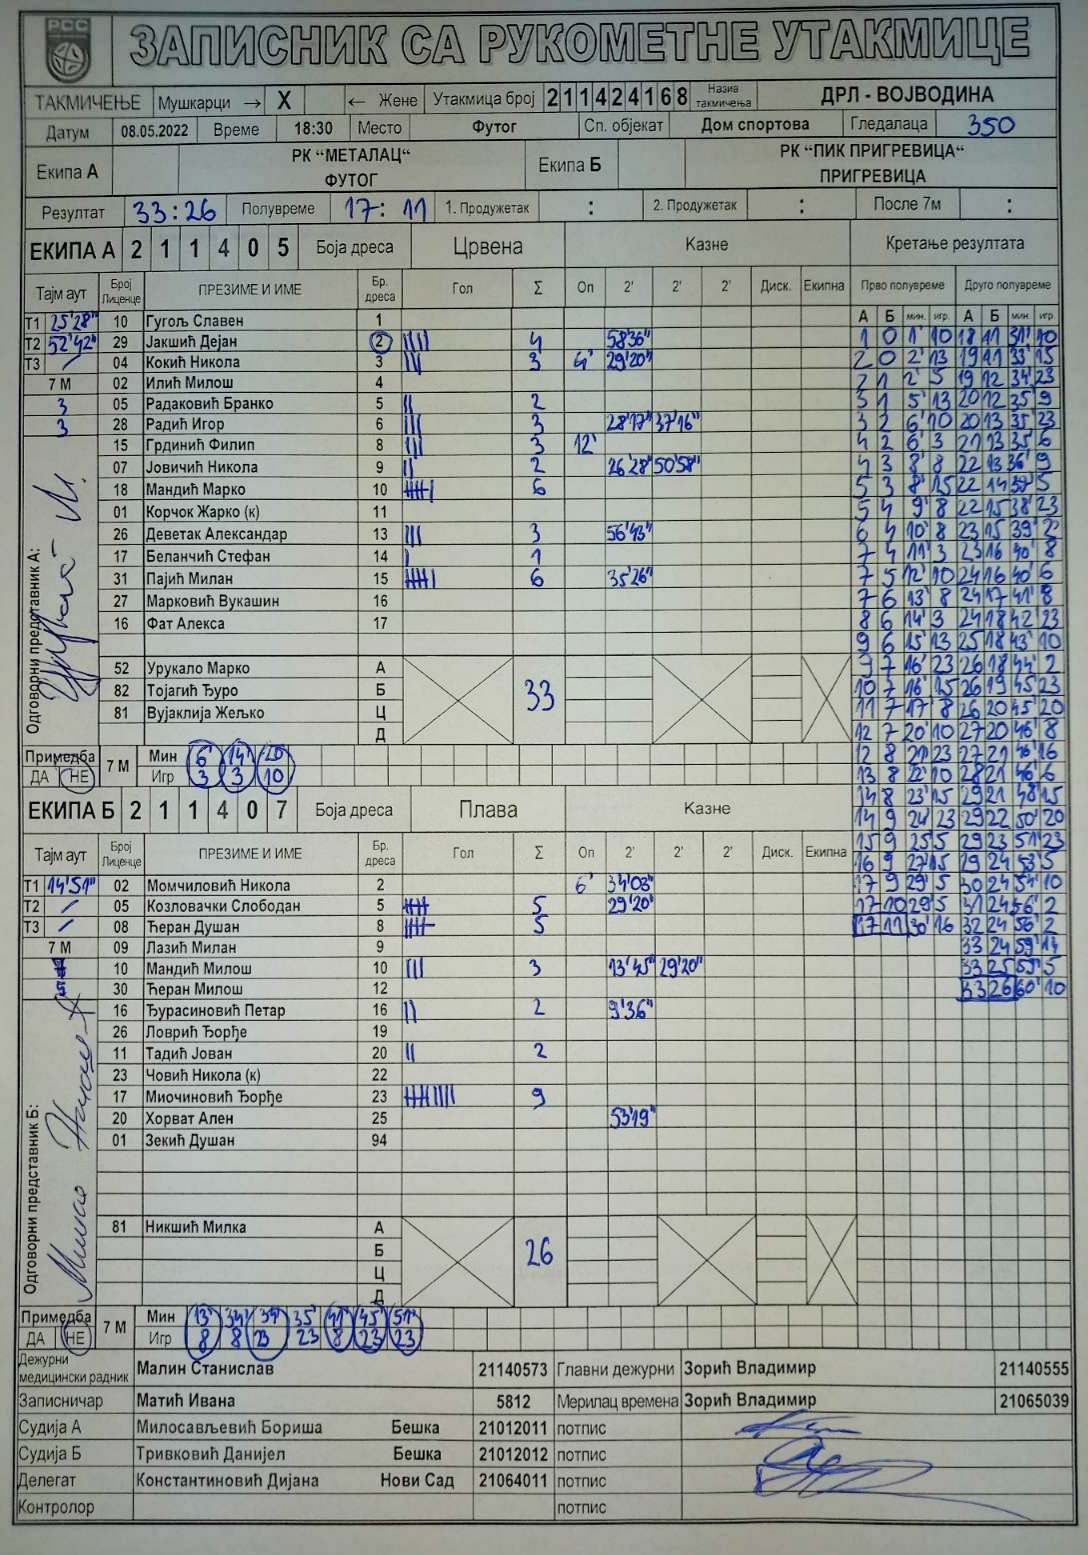 РСС
ЗАПИСНИК СА РУКОМЕТНЕ УТАКМИЦЕ
ТАКМИЧЕЊЕ Мушкарци → X ← Жене Утакмица број 211424168 Назив такмичења ДРЛ - ВОЈВОДИНА
Датум 08.05.2022 Време 18:30 Место Футог Сп. објекат Дом спортова Гледалаца 350
Екипа А РК “МЕТАЛАЦ“ ФУТОГ Екипа Б РК “ПИК ПРИГРЕВИЦА“ ПРИГРЕВИЦА
Резултат 33:26 Полувреме 17:11 1. Продужетак : 2. Продужетак : После 7м :
ЕКИПА А 2 1 1 4 0 5 Боја дреса Црвена Казне Кретање резултата
Тајм аут Број Лиценце ПРЕЗИМЕ И ИМЕ Бр. дреса Гол Σ Оп 2' 2' 2' Диск. Екипна Прво полувреме Друго полувреме
А Б мин. игр. А Б мин. игр
Т1 25'28" 10 Гугољ Славен 1
Т2 52'42" 29 Јакшић Дејан 2 4 58'36"
Т3 / 04 Кокић Никола 3 3 4' 29'20"
7 М 02 Илић Милош 4
3 05 Радаковић Бранко 5 2
3 28 Радић Игор 6 3 28'17" 37'16"
15 Грдинић Филип 8 3 12'
07 Јовичић Никола 9 2 26'28" 50'58"
18 Мандић Марко 10 6
01 Корчок Жарко (к) 11
26 Деветак Александар 13 3 56'43"
17 Беланчић Стефан 14 1
31 Пајић Милан 15 6 35'26"
27 Марковић Вукашин 16
16 Фат Алекса 17
52 Урукало Марко А
82 Тојагић Ђуро Б 33
81 Вујаклија Жељко Ц
Д
Одговорни представник А:
1 0 1' 10 18 11 31' 10
2 0 2' 13 19 11 33' 15
2 1 2' 5 19 12 34' 23
3 1 5' 13 20 12 35' 9
3 2 6' 10 20 13 35' 23
4 2 6' 3 21 13 35' 6
4 3 8' 8 22 13 36' 9
5 3 8' 15 22 14 38' 5
5 4 9' 8 22 15 38' 23
6 4 10' 8 23 15 39' 2
7 4 11' 3 23 16 40' 8
7 5 12' 10 24 16 40' 6
7 6 13' 8 24 17 41' 8
8 6 14' 3 24 18 42' 23
9 6 15' 13 25 18 43' 10
9 7 16' 23 26 18 44' 2
10 7 16' 15 26 19 45' 23
11 7 17' 8 26 20 45' 20
12 7 20' 10 27 20 46' 8
12 8 21' 23 27 21 46' 16
13 8 22' 10 28 21 46' 6
14 8 23' 15 29 21 48' 15
14 9 24' 23 29 22 50' 20
15 9 25' 5 29 23 51' 23
16 9 27' 15 29 24 53' 5
17 9 29' 5 30 24 54' 10
17 10 29' 5 31 24 56' 2
17 11 30' 16 32 24 56' 2
33 24 59' 14
33 25 59' 5
33 26 60' 10
Примедба ДА НЕ 7 М Мин 6' 14' 20'
Игр 3 3 10
ЕКИПА Б 2 1 1 4 0 7 Боја дреса Плава Казне
Тајм аут Број Лиценце ПРЕЗИМЕ И ИМЕ Бр. дреса Гол Σ Оп 2' 2' 2' Диск. Екипна
Т1 14'51" 02 Момчиловић Никола 2 6' 34'03"
Т2 / 05 Козловачки Слободан 5 5 29'20"
Т3 / 08 Ћеран Душан 8 5
7 М 09 Лазић Милан 9
10 Мандић Милош 10 3 13'45" 29'20"
5 30 Ћеран Милош 12
16 Ђурасиновић Петар 16 2 9'36"
26 Ловрић Ђорђе 19
11 Тадић Јован 20 2
23 Човић Никола (к) 22
17 Миочиновић Ђорђе 23 9
20 Хорват Ален 25 53'19"
01 Зекић Душан 94
81 Никшић Милка А
Б 26
Ц
Д
Одговорни представник Б:
Примедба ДА НЕ 7 М Мин 13' 34' 34' 35' 41' 45' 51'
Игр 8 8 23 23 8 23 23
Дежурни медицински радник Малин Станислав 21140573 Главни дежурни Зорић Владимир 21140555
Записничар Матић Ивана 5812 Мерилац времена Зорић Владимир 21065039
Судија А Милосављевић Бориша Бешка 21012011 потпис
Судија Б Тривковић Данијел Бешка 21012012 потпис
Делегат Константиновић Дијана Нови Сад 21064011 потпис
Контролор потпис